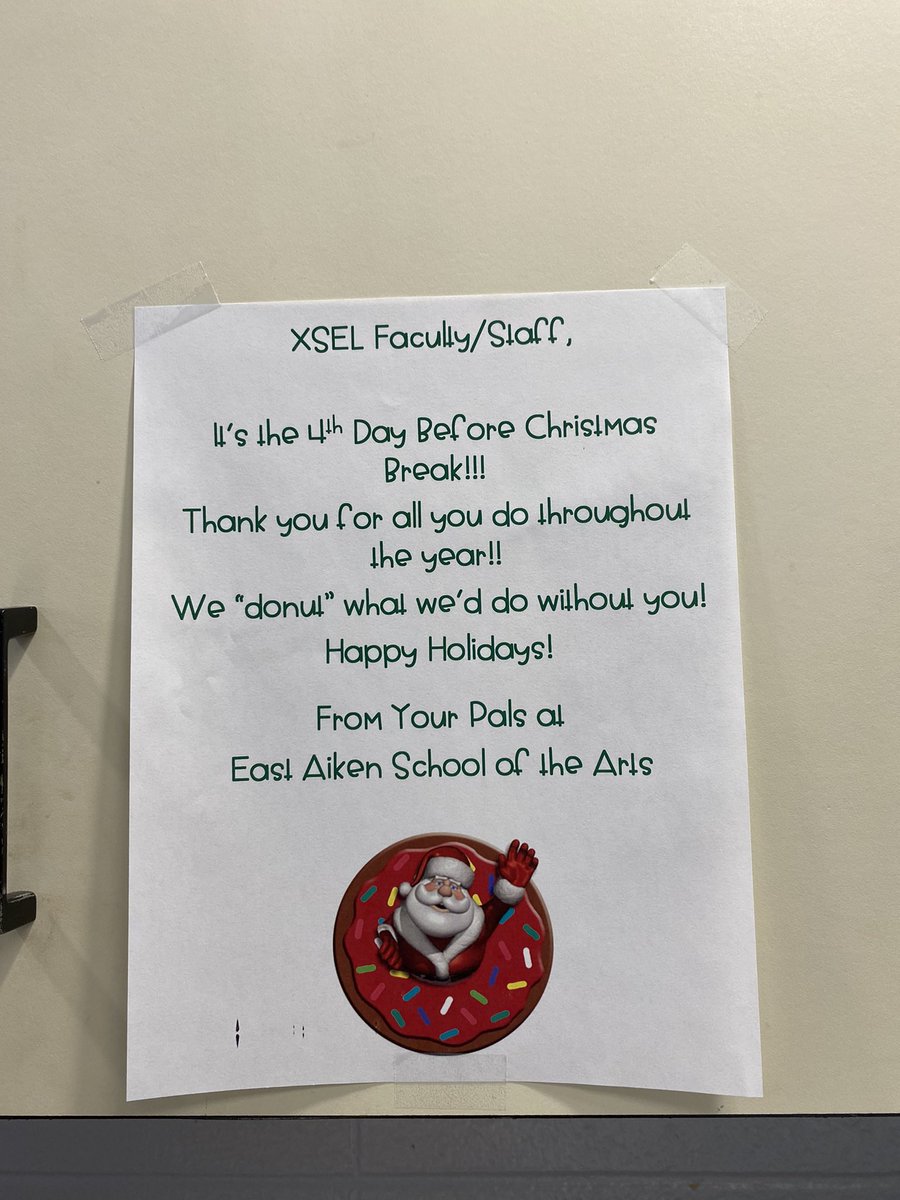 XSEL Faculty/Staff,
It's the 4th Day Before Christmas
Break!!!
Thank you for all you do throughout
the year!!
We “donut” what we'd do without you!
Happy Holidays!
From Your Pals at
East Aiken School of the Arts